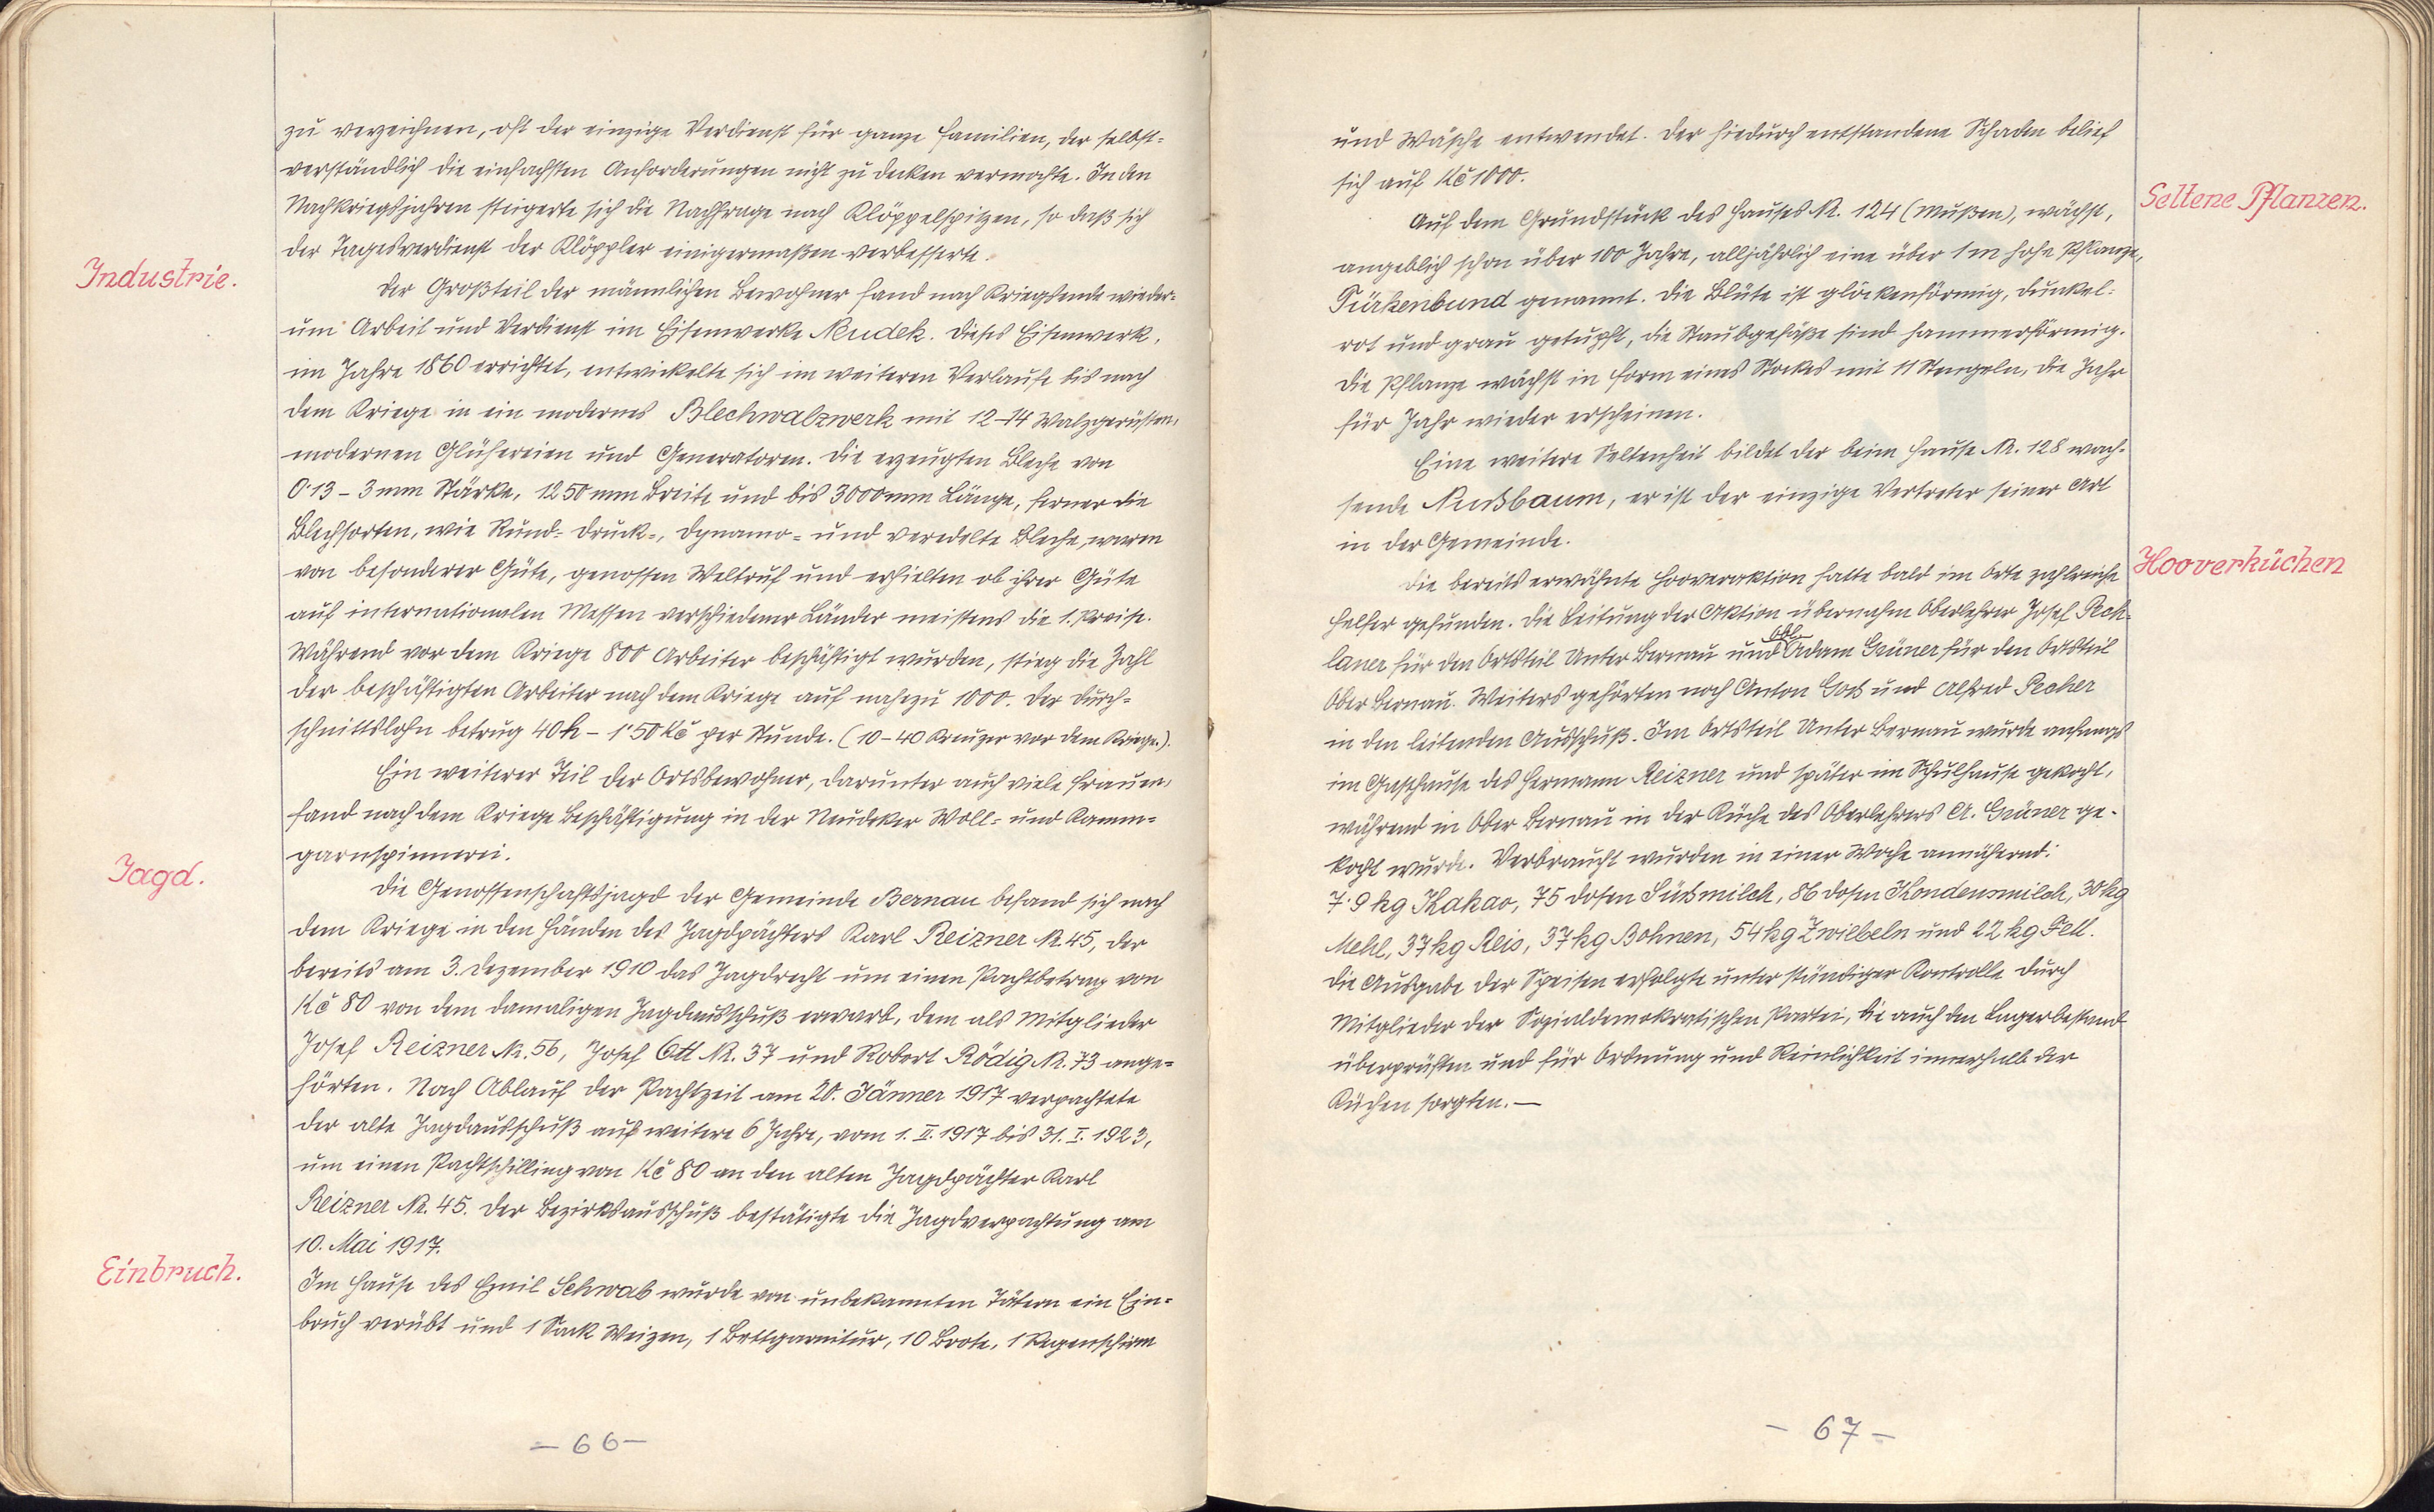 zu verzeichnen, oft der einzige Verdienst für ganze Familien, der selbst-
verständlich die einfachsten Anforderungen nicht zu decken vermochte. In den
Nachkriegsjahren steigerte sich die Nachfrage nach Klöppelspitzen, so daß sich
der Tagesverdienst der Klöppler einigermaßen verbesserte.
Industrie.
Der Großteil der männlichen Bewohner fand nach Kriegsende wieder-
um Arbeit und Verdienst im Eisenwerke Neudek. Dieses Eisenwerk,
im Jahre 1860 errichtet, entwickelte sich im weiteren Verlaufe bis nach
dem Kriege in ein modernes Blechwalzwerk mit 12-14 Walzgerüsten,
modernen Glühereien und Generatoren. Die erzeugten Bleche von
0·13 - 3 mm Stärke, 1250 mm Breite und bis 3000 mm Länge, ferner die
Blechsorten, wie Rund- Druck-, Dynamo- und veredelte Bleche, waren
von besonderer Güte, genossen Weltruf und erhielten ob ihrer Güte
auf internationalen Messen verschiedener Länder meistens die 1. Preise.
Während vor dem Kriege 800 Arbeiter beschäftigt wurden, stieg die Zahl
der beschäftigten Arbeiter nach dem Kriege auf nahezu 1000. Der Durch-
schnittslohn betrug 40 h - 1·50 Kč per Stunde. (10-40 Kreuzer vor dem Kriege.).
Ein weiterer Teil der Ortsbewohner, darunter auch viele Frauen,
fand nach dem Kriege Beschäftigung in der Neudeker Woll- und Kamm-
garnspinnerei.
Jagd.
Die Genossenschaftsjagd der Gemeinde Bernau befand sich nach
dem Kriege in den Händen des Jagdpächters Karl Reizner Nr. 45, der
bereits am 3. Dezember 1910 das Jagdrecht um einen Pachtbetrag von
Kč 80 von dem damaligen Jagdausschuß erwarb, dem als Mitglieder
Josef Reizner Nr. 56, Josef Ott Nr. 37 und Robert Rödig Nr. 73 ange-
hörten. Nach Ablauf der Pachtzeit am 20. Jänner 1917 verpachtete
der alte Jagdausschuß auf weitere 6 Jahre, vom 1. II. 1917 bis 31. I. 1923,
um einen Pachtschilling von Kč 80 an den alten Jagdpächter Karl
Reizner Nr. 45. Der Bezirksausschuß bestätigte die Jagdverpachtung am
10. Mai 1917.
Einbruch.
Im Hause des Emil Schwab wurde von unbekannten Tätern ein Ein-
bruch verübt und 1 Sack Weizen, 1 Bettgarnitur, 10 Brote, 1 Regenschirm
- 66 -
und Wäsche entwendet. Der hiedurch entstandene Schaden belief
sich auf Kč 1000.
Seltene Pflanzen.
Auf dem Grundstück des Hauses Nr. 124 (Mußen), wächst,
angeblich schon über 100 Jahre, alljährlich eine über 1 m hohe Pflanze,
Türkenbund genannt. Die Blüte ist glockenförmig, dunkel-
rot und grau getupft, die Staubgefäße sind hammerförmig.
Die Pflanze wächst in Form eines Stockes mit 11 Stengeln, die Jahr
für Jahr wieder erscheinen.
Eine weitere Seltenheit bildet der beim Hause Nr. 128 wach-
sende Nußbaum, er ist der einzige Vertreter seiner Art
in der Gemeinde.
Hooverküchen
Die bereits erwähnte Hooveraktion hatte bald im Orte zahlreiche
Helfer gefunden. Die Leitung der Aktion übernahm Oberlehrer Josef Pech-
laner für den Ortsteil Unter Bernau und Obl. Adam Grüner für den Ortsteil
Ober Bernau. Weiters gehörten noch Anton Goß und Alfred Pecher
in den leitenden Ausschuß. Im Ortsteil Unter Bernau wurde anfangs
im Gasthause des Hermann Reizner und später im Schulhause gekocht,
während in Ober Bernau in der Küche des Oberlehrers A. Grüner ge-
kocht wurde. Verbraucht wurden in einer Woche annähernd:
7·9 kg Kakao, 75 Dosen Süßmilch, 86 Dosen Kondensmilch, 30 kg
Mehl, 37 kg Reis, 37 kg Bohnen, 54 kg Zwiebeln und 22 kg Fett.
Die Ausgabe der Speisen erfolgte unter ständiger Kontrolle durch
Mitglieder der Sozialdemokratischen Partei, die auch den Lagerbestand
überprüften und für Ordnung und Reinlichkeit innerhalb der
Küchen sorgten. —
- 67 -